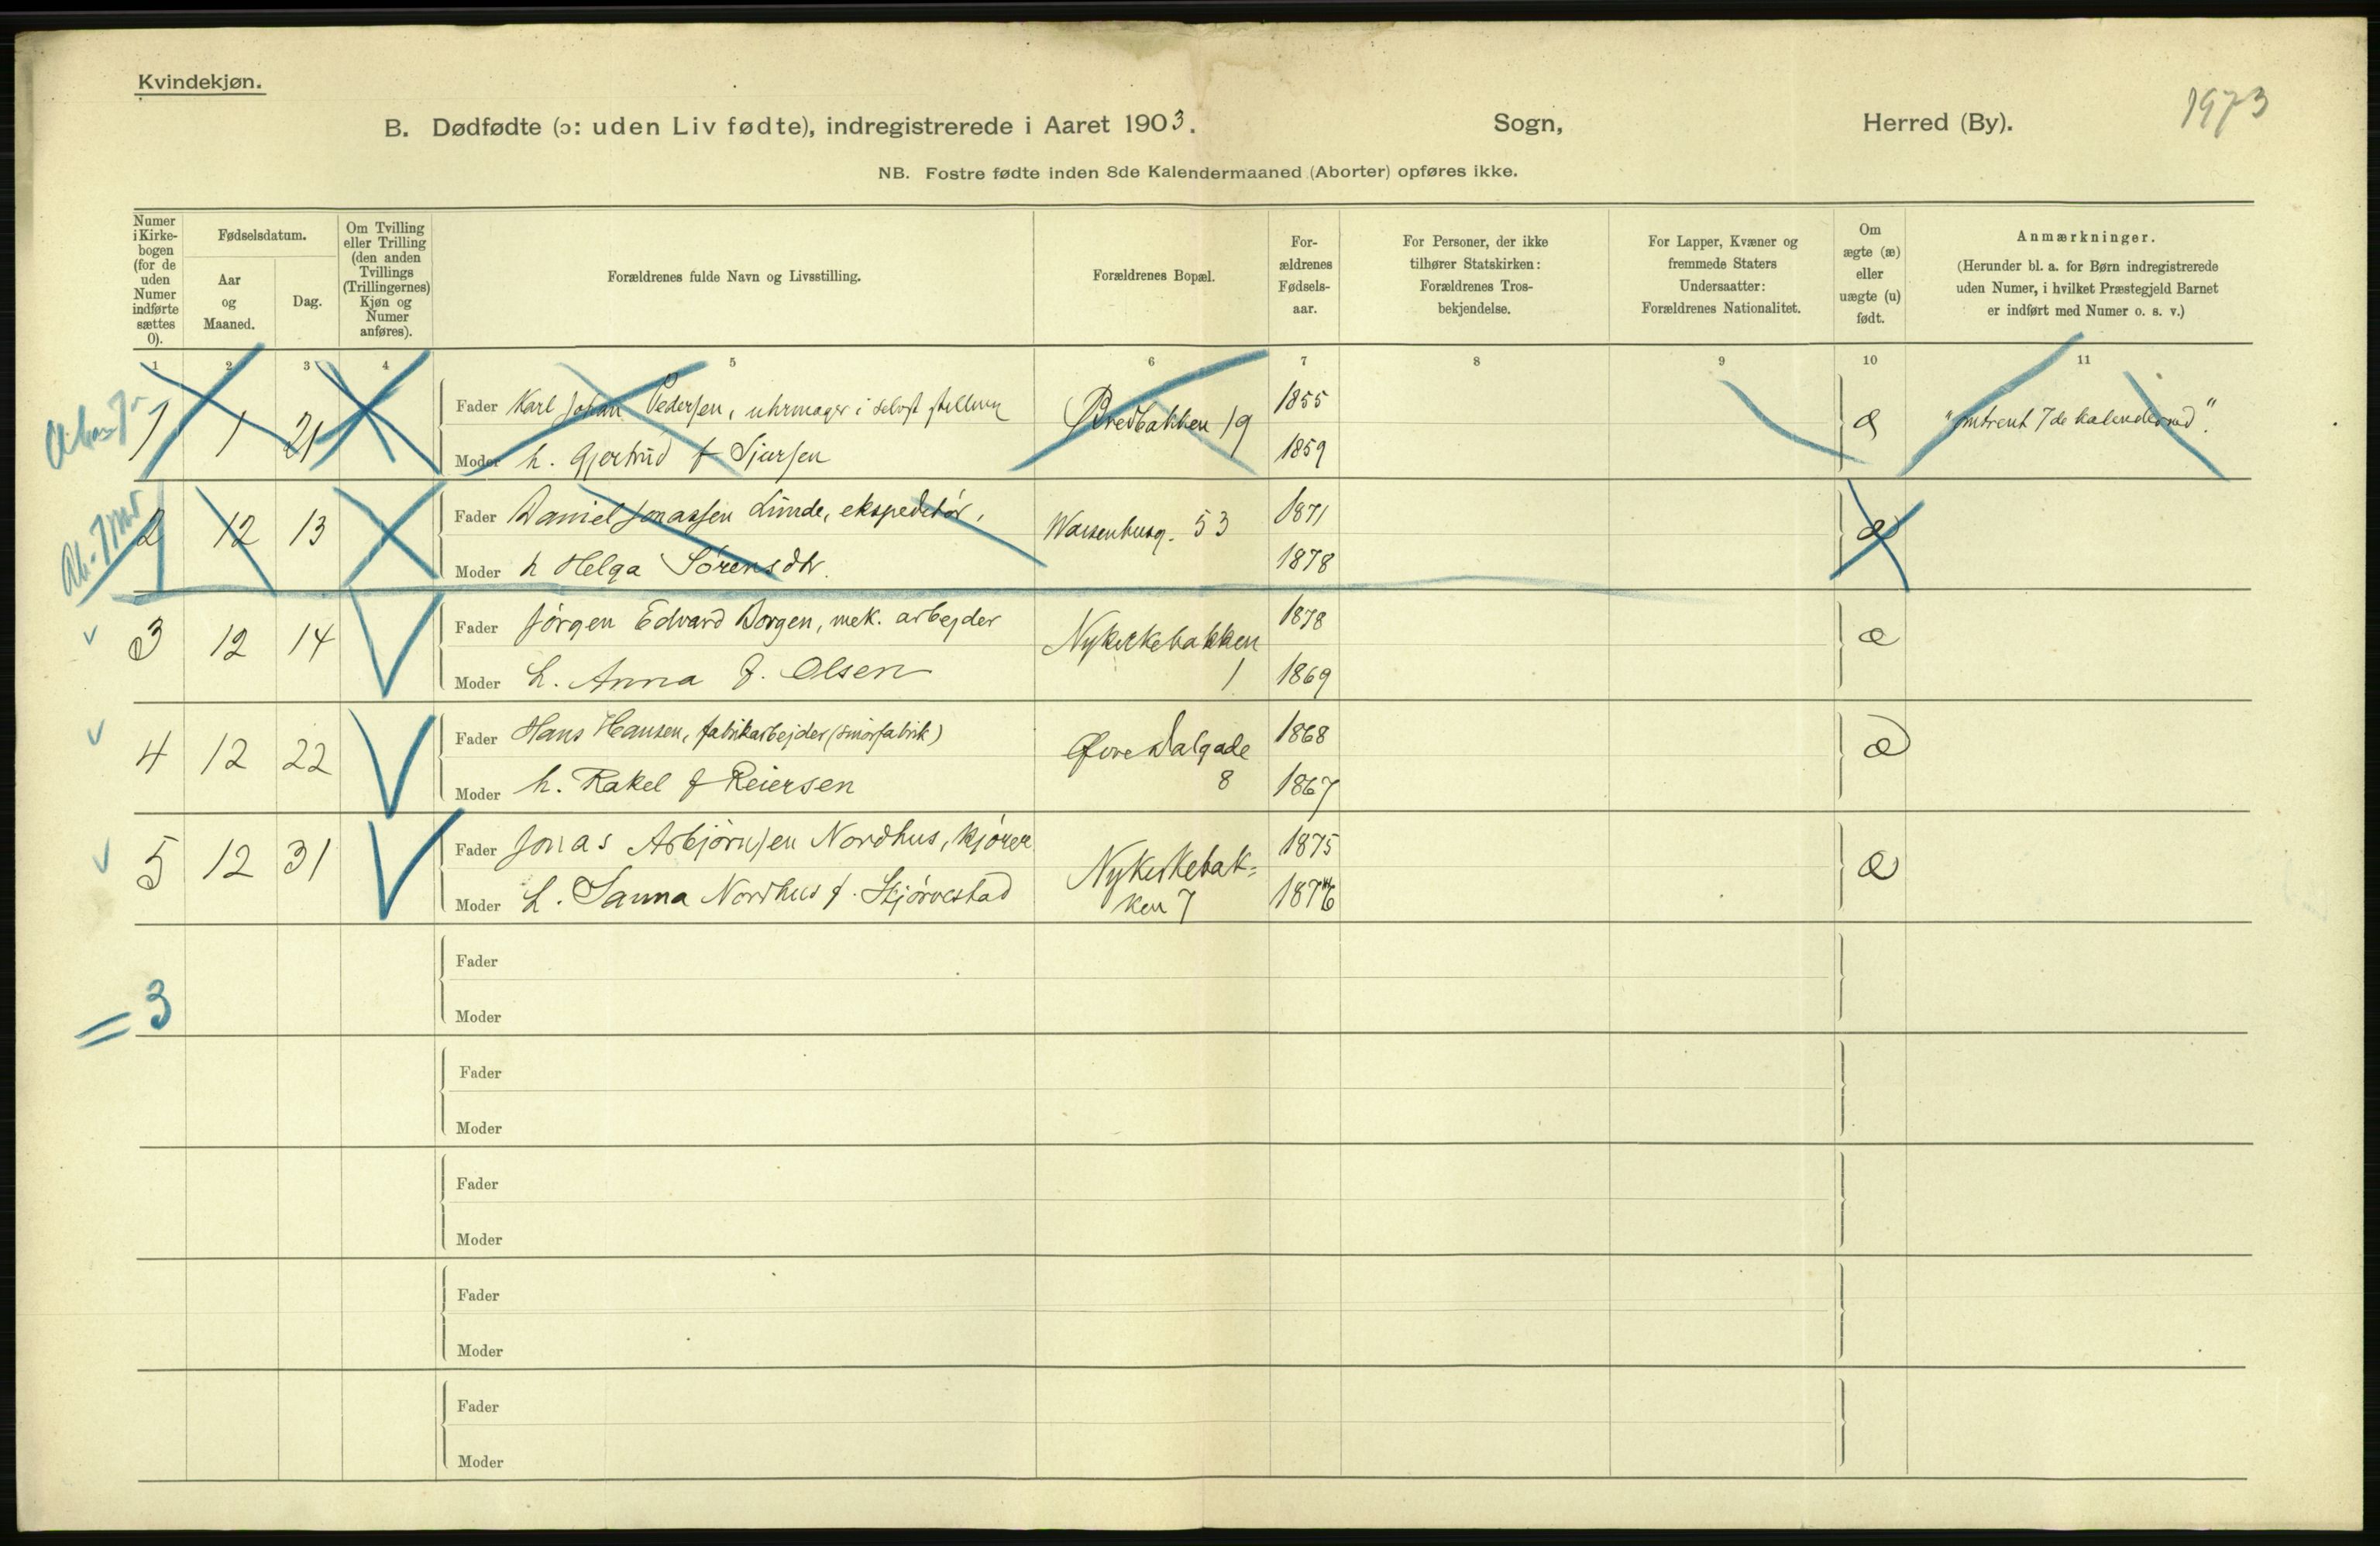 Kvindekjøn.
1973
B. Dødfødte (ɔ: uden Liv fødte), indregistrerede i Aaret 1903. Sogn, Herred (By).
NB. Fostre fødte inden 8de Kalendermaaned (Aborter) opføres ikke.
Numer i Kirke- bogen (for de uden Numer indførte sættes 0).
Fødselsdatum.
Aar og Maaned.
Dag.
Om Tvilling eller Trilling (den anden Tvillings (Trillingernes) Kjøn og Numer anføres).
Forældrenes fulde Navn og Livsstilling.
Forældrenes Bopæl.
For- ældrenes Fødsels- aar.
For Personer, der ikke tilhører Statskirken: Forældrenes Tros- bekjendelse.
For Lapper, Kvæner og fremmede Staters Undersaatter: Forældrenes Nationalitet.
Om ægte (æ) eller uægte (u) født.
Anmærkninger.
(Herunder bl. a. for Børn indregistrerede uden Numer, i hvilket Præstegjeld Barnet er indført med Numer o. s. v.)
1 2 3 4 5 6 7 8 9 10 11
1 1 21 Fader Karl Johan Pedersen, uhrmager i selvst stilling Bredbakken 19 1855 æ "omtrent 7de kalendermd".
Moder h. Gjertrud f Sjursen 1859
2 12 13 Fader Daniel Jonassen Lunde, ekspeditør, Waisenhusg. 53 1871 æ
Moder h Helga Sørensdtr. 1878
3 12 14 Fader Jørgen Edvard Dorgen, mek. arbejder Nykirkebakken 1878 æ
Moder h. Anna f. Olsen 1 1869
4 12 22 Fader Hans Hansen, fabrikarbejder (smørfabrik) Øvre Dalgade 1868 æ
Moder h. Rakel f Reiersen 8 1867
5 12 31 Fader Jonas Asbjørnsen Nordhus, kjører Nykirkebak= 1875 æ
Moder h. Sanna Nordhus f. Skjørvestad ken 7 1876
Fader
= 3
Moder
Fader
Moder
Fader
Moder
Fader
Moder
Fader
Moder